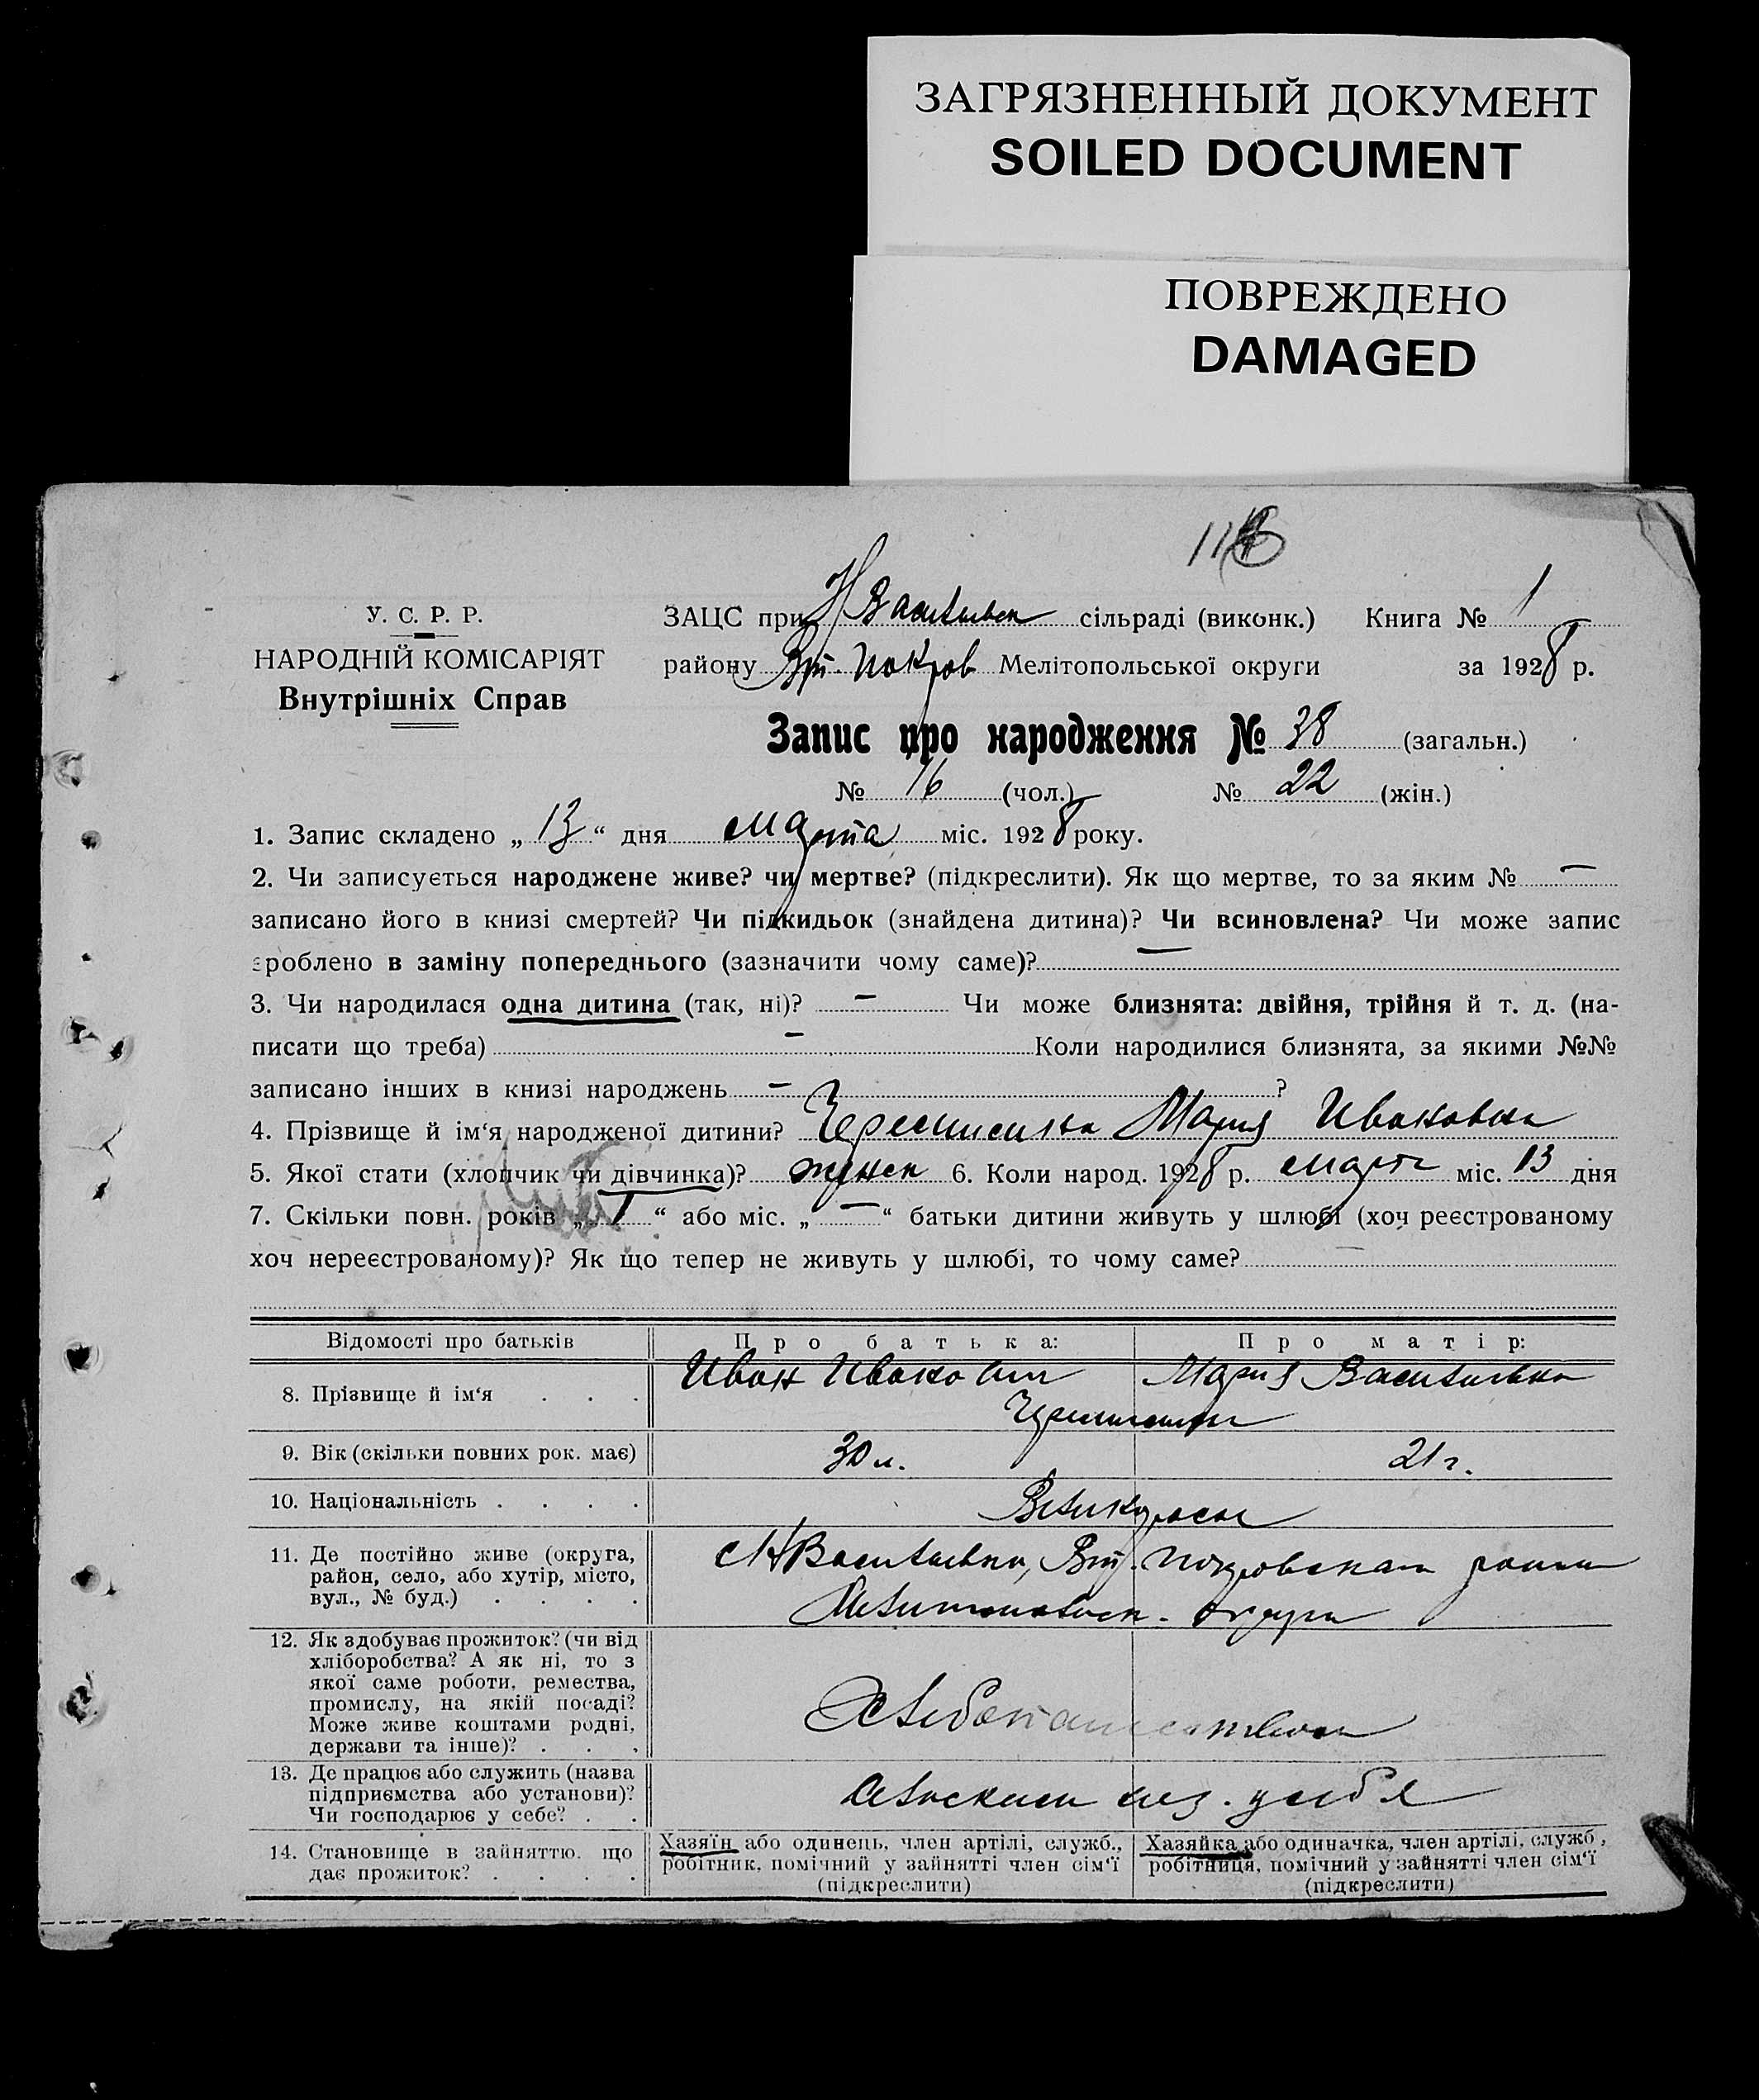 ЗАГРЯЗНЕННЫЙ ДОКУМЕНТ
SOILED DOCUMENT
ПОВРЕЖДЕНО
DAMAGED
У. С. Р. Р.
НАРОДНІЙ КОМІСАРІЯТ
Внутрішніх Справ
ЗАЦС при Н Васильевск сільраді (виконк.) Книга № 1
району Вр. Покров Мелітопольської округи за 1928 р.
Запис про народження № 38 (загальн.)
№ 16 (чол.) № 22 (жін.)
1. Запис складено „13“ дня марта міс. 1928 року.
2. Чи записується народжене живе? чи мертве? (підкреслити). Як що мертве, то за яким № —
записано його в книзі смертей? Чи підкидьок (знайдена дитина)? Чи всиновлена? Чи може запис
зроблено в заміну попереднього (зазначити чому саме)? —
3. Чи народилася одна дитина (так, ні)? — Чи може близнята: двійня, трійня й т. д. (на-
писати що треба) — Коли народилися близнята, за якими №№
записано інших в книзі народжень — ?
4. Прізвище й ім‘я народженої дитини? Мария Ивановна
5. Якої стати (хлопчик чи дівчинка)? женск 6. Коли народ. 1928 р. март міс. 13 дня
7. Скільки повн. років „1“ або міс. „—“ батьки дитини живуть у шлюбі (хоч реєстрованому
хоч нереєстрованому)? Як що тепер не живуть у шлюбі, то чому саме? —
Відомості про батьків Про батька: Про матір:
8. Прізвище й ім‘я . . . Иван Иванович Мария Васильевна
9. Вік (скільки повних рок. має) 30 л. 21 г.
10. Національність . . . . Великоросы
11. Де постійно живе (округа,
район, село, або хутір, місто,
вул., № буд.) . . . .
Н Васильевка, Вр. Покровского района
Мелитопольск. округа
12. Як здобуває прожиток? (чи від
хліборобства? А як ні, то з
якої саме роботи, ремества,
промислу, на якій посаді?
Може живе коштами родні,
держави та інше)? . . .
Хлебопашеством
13. Де працює або служить (назва
підприємства або установи)?
Чи господарює у себе? . .
сельским хоз. у себя
14. Становище в зайняттю, що
дає прожиток? . . . .
Хазяїн або одинець, член артілі, служб.,
робітник, помічний у зайнятті член сім‘ї
(підкреслити)
Хазяйка або одиначка, член артілі, служб,
робітниця, помічний у зайнятті член сім‘ї
(підкреслити)